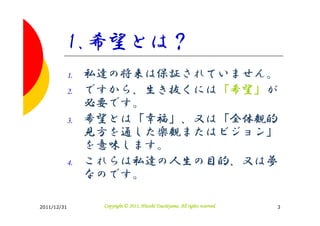 1. 希望とは？
1. 私達の将来は保証されていません。
2. ですから、生き抜くには「希望」が
必要です。
3. 希望とは「幸福」、又は「全体観的
見方を通した楽観またはビジョン」
を意味します。
4. これらは私達の人生の目的、又は夢
なのです。
2011/12/31 Copyright © 2011 Hitoshi Tsuchiyama. All rights reserved. 3